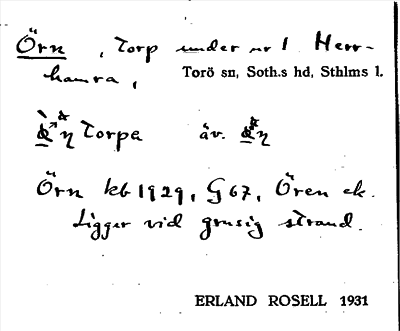 Örn, Torp under nr 1 Herr-
hamra, Torö sn, Soth.s hd, Sthlms l.
Torpa äv.
Örn kb 1929, G 67, Ören ek.
Ligger vid grusig strand.
ERLAND ROSELL 1931